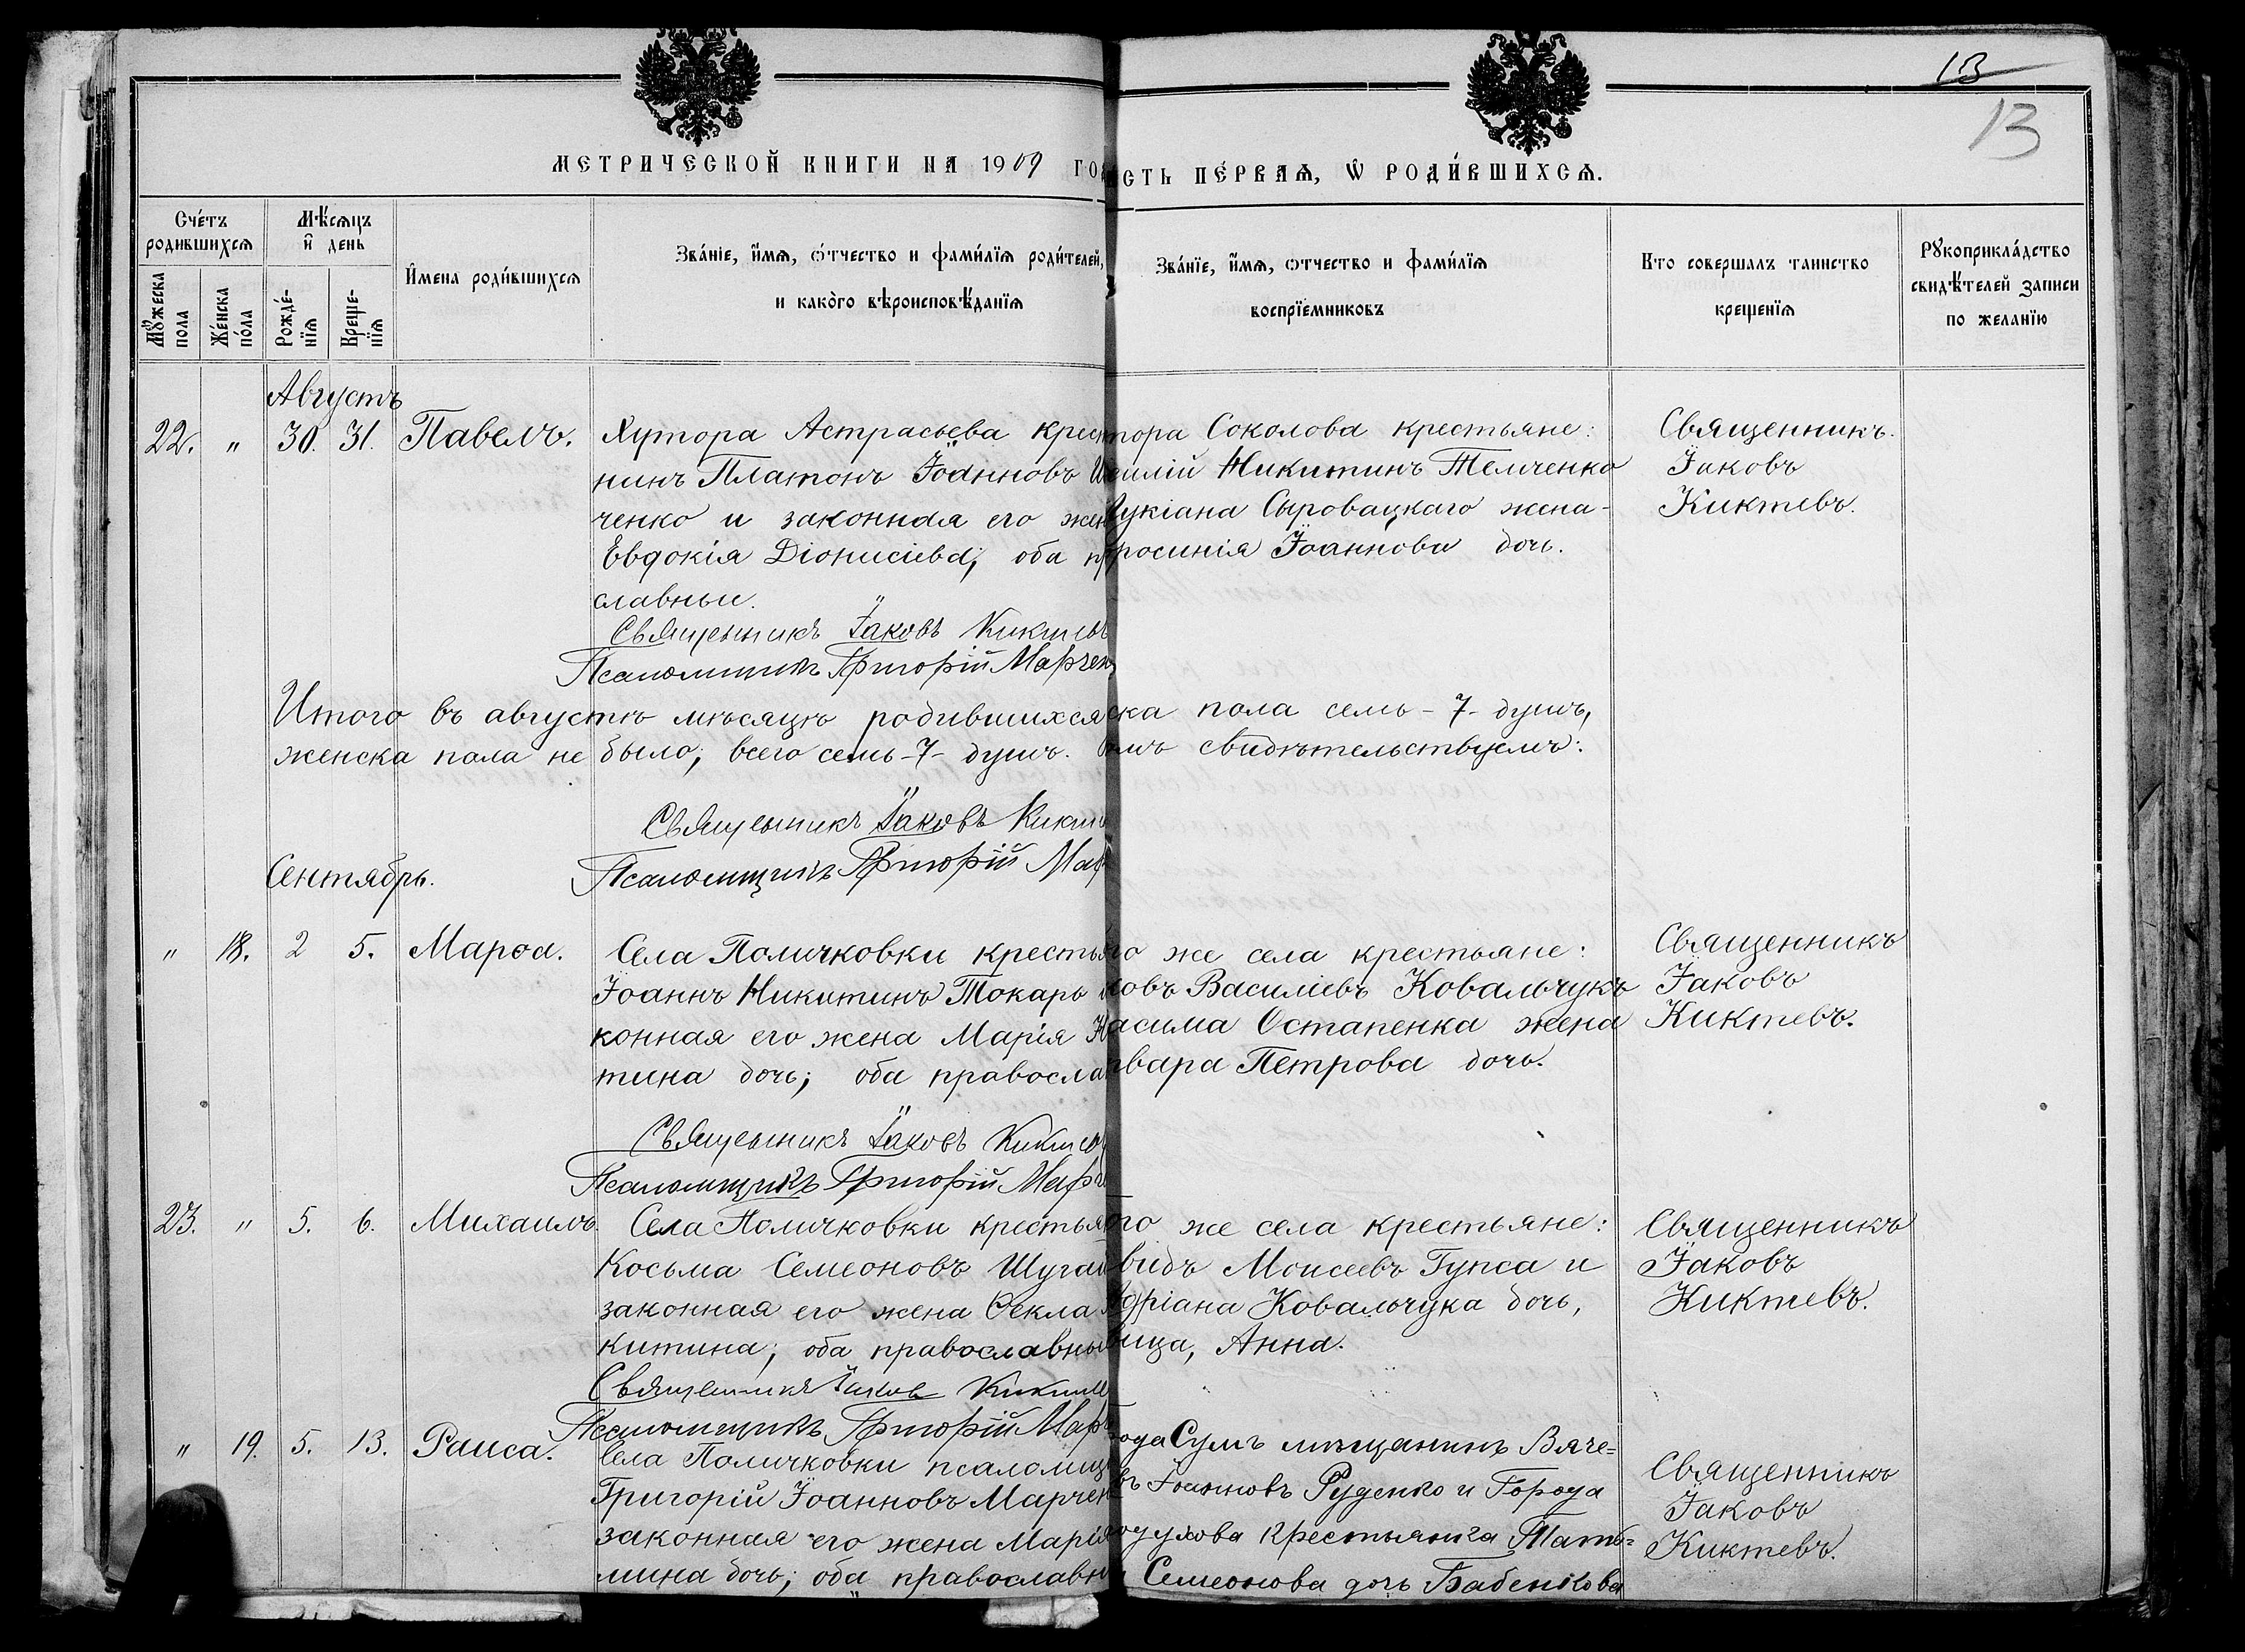 13
13
МЕТРИЧЕСКОЙ КНИГИ НА 1909 ГО
СТЬ ПЕ́РВАѦ, Ѡ РОДИ́ВШИХСѦ.
Сче́тъ родившихсѧ
Мѣ́сѧцъ и҆ день
И҆мена роди́вшихсѧ
Зва́нїе, и҆́мѧ, ѻ҆́тчество и фами́лїѧ роди́телей,
и како́го вѣроисповѣ́данїѧ
Зва́нїе, и҆́мѧ, ѻтчество и фами́лїѧ
воспрїемниковъ
Кто совершалъ таинство
крещенїѧ
Рꙋкоприкла́дство
свидѣ́телей записи
по желанїю
Мꙋ́жеска пола
Же́нска по́ла
Рожде́нїѧ
Креще́нїѧ
Августъ
22. " 30. 31. Павелъ.
Хутора Астрасьева крес
нинъ Платонъ Іоанновъ
ченко и законная его жен
Евдокія Діонисіева; оба п
славные.
Священникъ Іаковъ Киктев
Псаломщикъ Григорій Марчен
тора Соколова крестьяне:
силій Никитинъ Темченко
Лукіана Сыровацкаго жена-
росинія Іоаннова дочь.
Священникъ.
Іаковъ
Киктевъ.
Итого въ августѣ мѣсяцѣ родившихся
ска пола семь - 7 - душъ,
женска пола не было; всего семь - 7 - душъ.
омъ свидѣтельствуемъ:
Священникъ Іаковъ Кикт
Псаломщикъ Григорій Мар
Сентябрь.
" 18. 2 5. Марѳа.
Села Поличковки кресть
Іоаннъ Никитинъ Токарь
конная его жена Марія
тина дочь; оба правосла
Священникъ Іаковъ Кикте
Псаломщикъ Григорій Марч
го же села крестьяне:
ковъ Василіевъ Ковальчукъ
асима Остапенка жена
рвара Петрова дочь.
Священникъ
Іаковъ
Киктевъ.
23. " 5. 6. Михаилъ.
Села Поличковки крестья
Косьма Семеоновъ Шуга
законная его жена Ѳекла
китина; оба православны
Священникъ Іаков Кикте
Псаломщикъ Григорій Мар
го же села крестьяне:
видъ Моисеевъ Гупса и
Адріана Ковальчука дочь,
вица, Анна.
Священникъ
Іаковъ
Киктевъ.
" 19. 5. 13. Раиса.
Села Поличковки псаломщ
Григорій Іоанновъ Марчен
законная его жена Марія
мина дочь; оба православн
ода Сумъ мѣщанинъ Вяче=
въ Іоанновъ Руденко и Города
одухова крестьянка Тать=
Семеонова дочь Бабенкова
Священникъ
Іаковъ
Киктевъ.